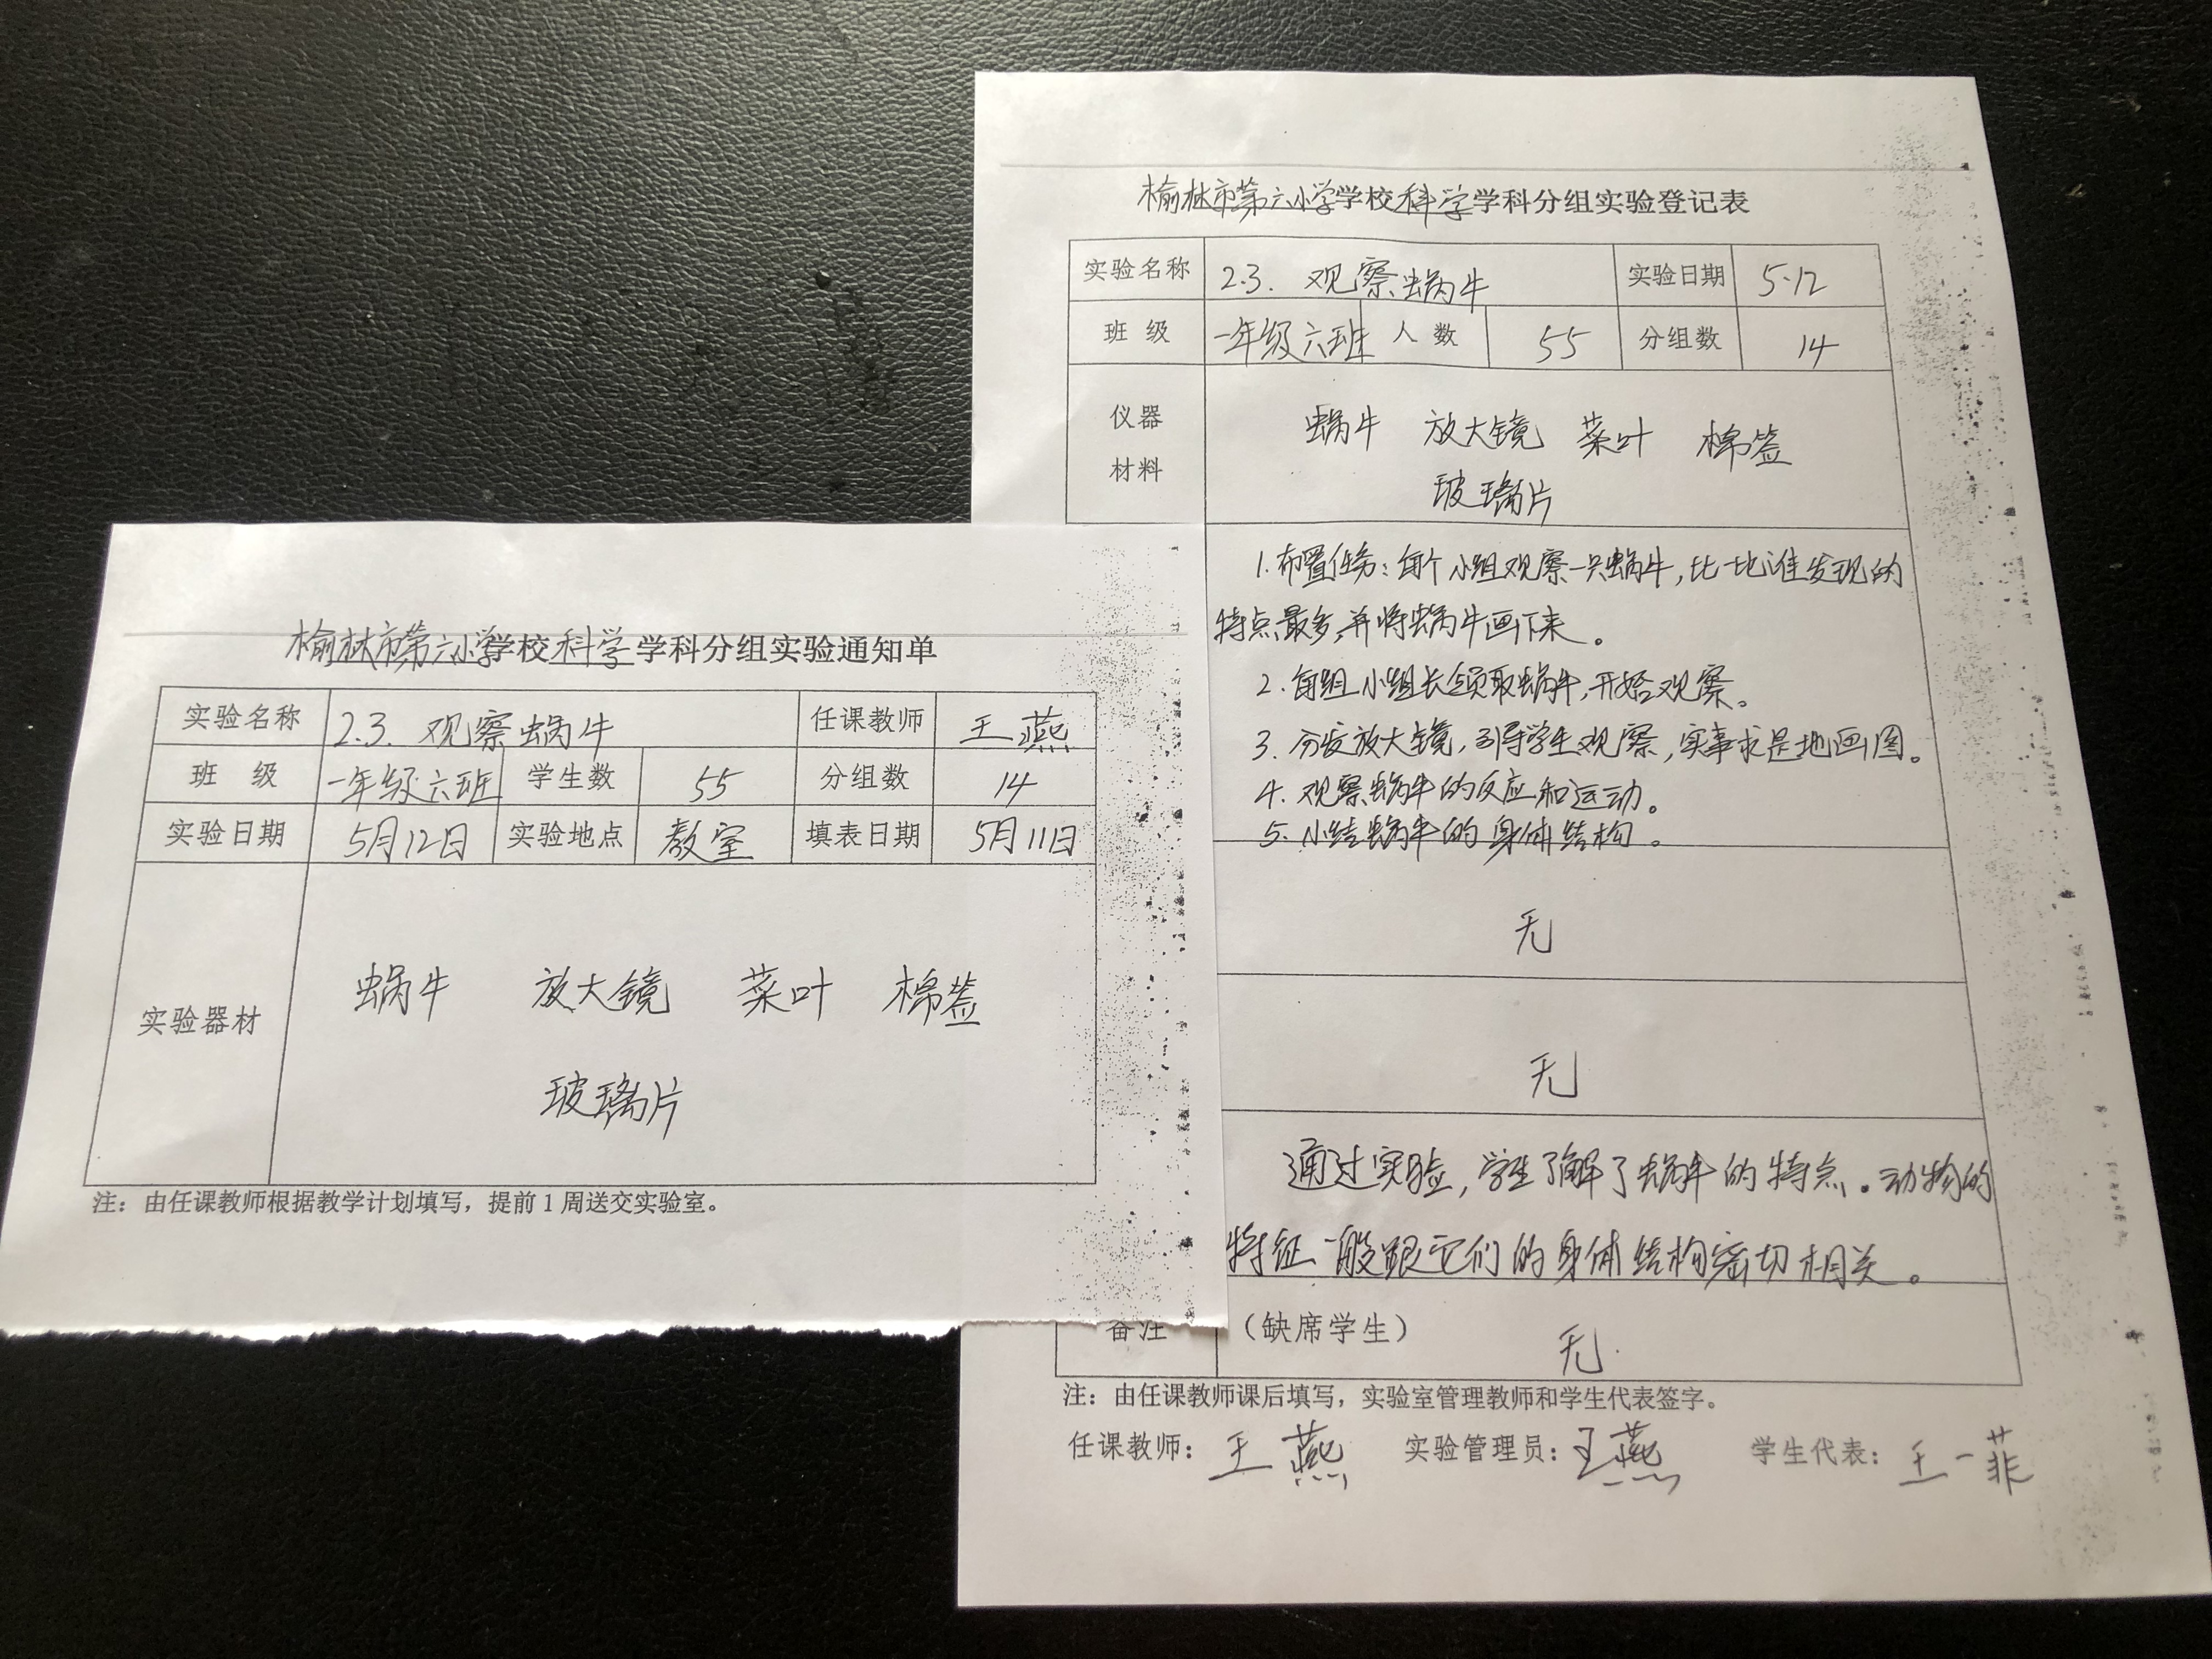 榆林市第六小学学校科学学科分组实验通知单
实验名称 2.3. 观察蜗牛 任课教师 王燕
班 级 一年级六班 学生数 55 分组数 14
实验日期 5月12日 实验地点 教室 填表日期 5月11日
实验器材 蜗牛 放大镜 菜叶 棉签
玻璃片
注：由任课教师根据教学计划填写，提前1周送交实验室。
榆林市第六小学学校科学学科分组实验登记表
实验名称 2.3. 观察蜗牛 实验日期 5.12
班 级 一年级六班 人 数 55 分组数 14
仪器
材料
蜗牛 放大镜 菜叶 棉签
玻璃片
1. 布置任务：每个小组观察一只蜗牛，比一比谁发现的
特点最多，并将蜗牛画下来。
2. 每组小组长领取蜗牛，开始观察。
3. 分发放大镜，引导学生观察，实事求是地画图。
4. 观察蜗牛的反应和运动。
5. 小结蜗牛的身体结构。
无
无
通过实验，学生了解了蜗牛的特点。动物的
特征一般跟它们的身体结构密切相关。
备注 （缺席学生） 无.
注：由任课教师课后填写，实验室管理教师和学生代表签字。
任课教师：王燕 实验管理员：王燕 学生代表：王一菲